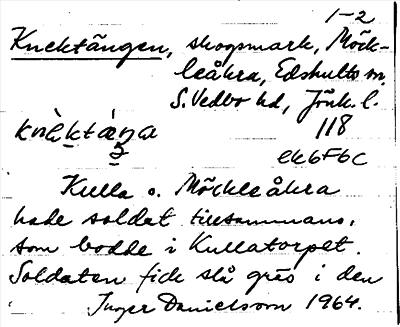 1-2
Knektängen, skogsmark, Möck-
leåkra, Edshults sn.
S. Vedbo hd, Jönk. l.
118
ek6F6c
Kulla o. Möckleåkra
hade soldat tillsammans,
som bodde i Kullatorpet.
Soldaten fick slå gräs i den
Inger Danielsson 1964.